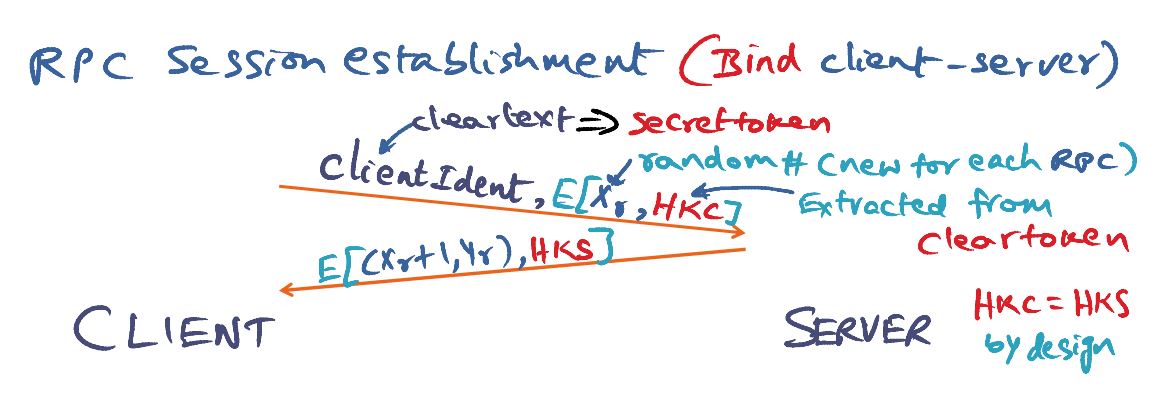 RPC Session establishment (Bind client-server)
cleartext => secrettoken
random # (new for each RPC)
ClientIdent, E[Xr, HKC]
Extracted from
cleartoken
E[(Xr+1, Yr), HKS]
HKC = HKS
by design
CLIENT
SERVER